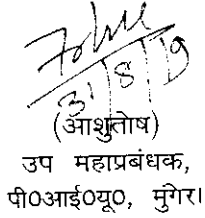 31/8/19
(आशुतोष)
उप महाप्रबंधक,
पी0आई0यू0, मुंगेर।